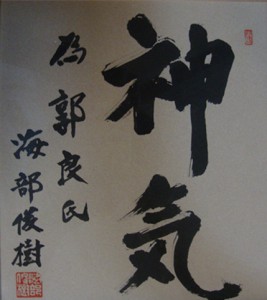 神気
為郭良氏
海部俊樹